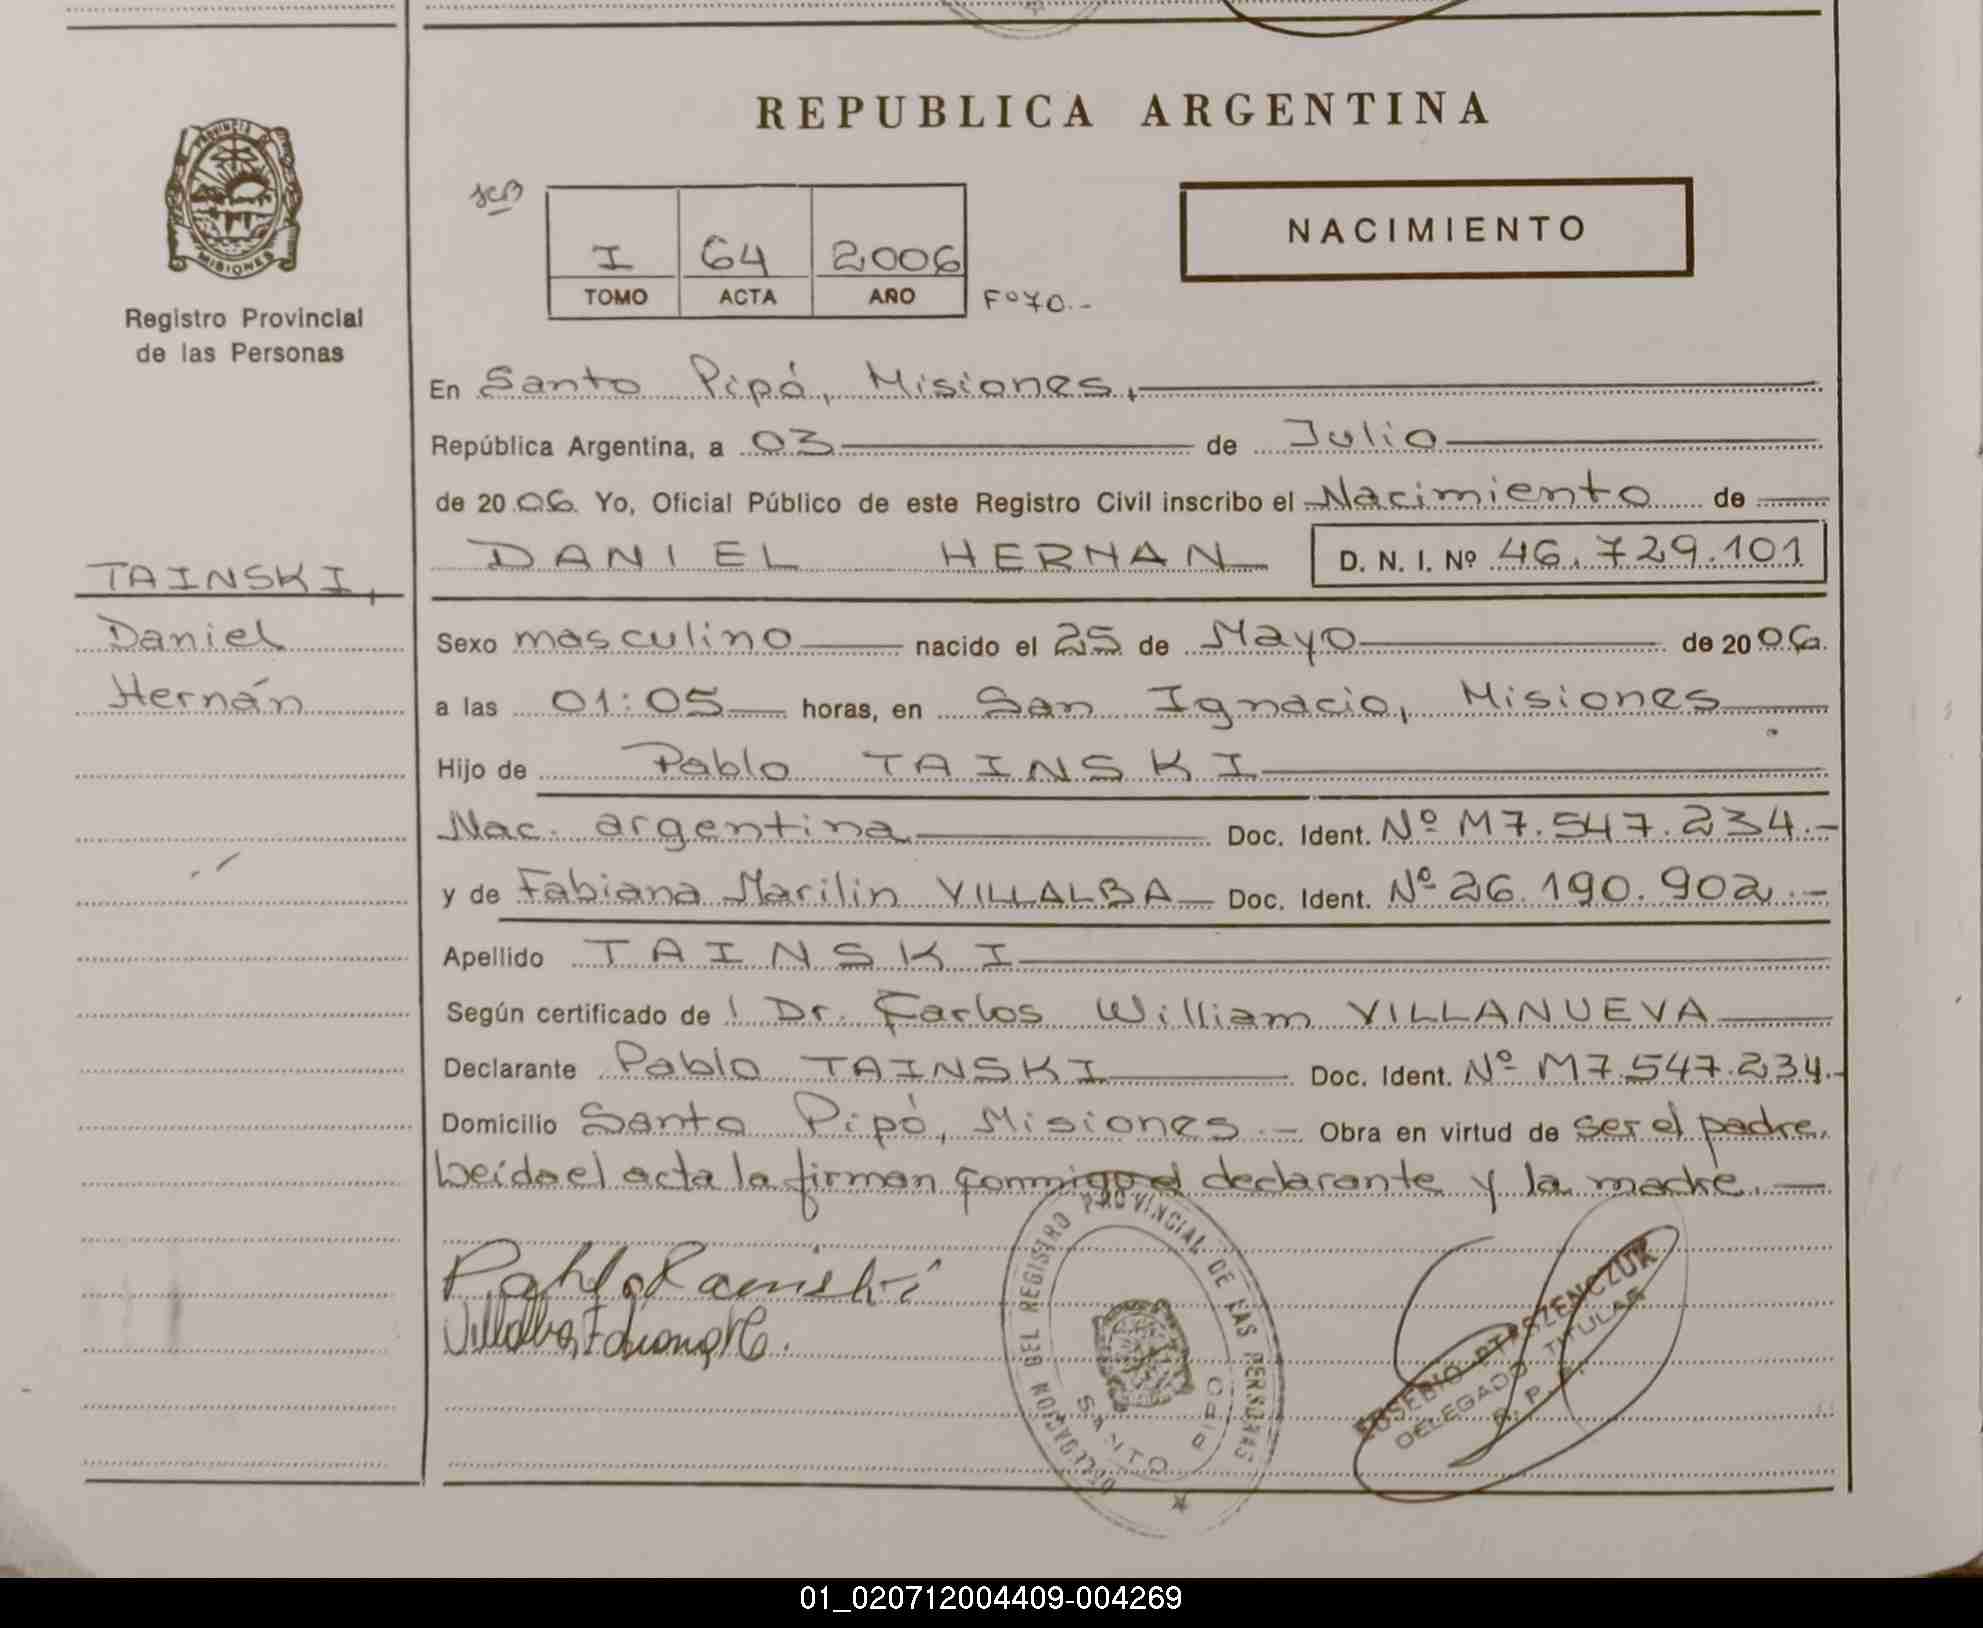 REPUBLICA ARGENTINA
PROVINCIA
MISIONES
Registro Provincial
de las Personas
I 64 2006
TOMO ACTA AÑO
Fº 70.-
NACIMIENTO
En Santo Pipó, Misiones,
República Argentina, a 03 de Julio
de 2006. Yo, Oficial Público de este Registro Civil inscribo el Nacimiento de
TAINSKI,
Daniel
Hernán
DANIEL HERNAN D. N. I. Nº 46.729.101
Sexo masculino nacido el 25 de Mayo de 2006.
a las 01:05 horas, en San Ignacio, Misiones
Hijo de Pablo TAINSKI
Nac. argentina Doc. Ident. Nº M7.547.234.-
y de Fabiana Marilin VILLALBA Doc. Ident. Nº 26.190.902.-
Apellido TAINSKI
Según certificado de Dr. Carlos William VILLANUEVA
Declarante Pablo TAINSKI Doc. Ident. Nº M7.547.234.-
Domicilio Santo Pipó, Misiones.- Obra en virtud de ser el padre.
Leída el acta la firman conmigo el declarante y la madre.—
DELEGACION DEL REGISTRO PROVINCIAL DE LAS PERSONAS
SANTO PIPO
DELEGADO TITULAR
R. P. P.
01_020712004409-004269